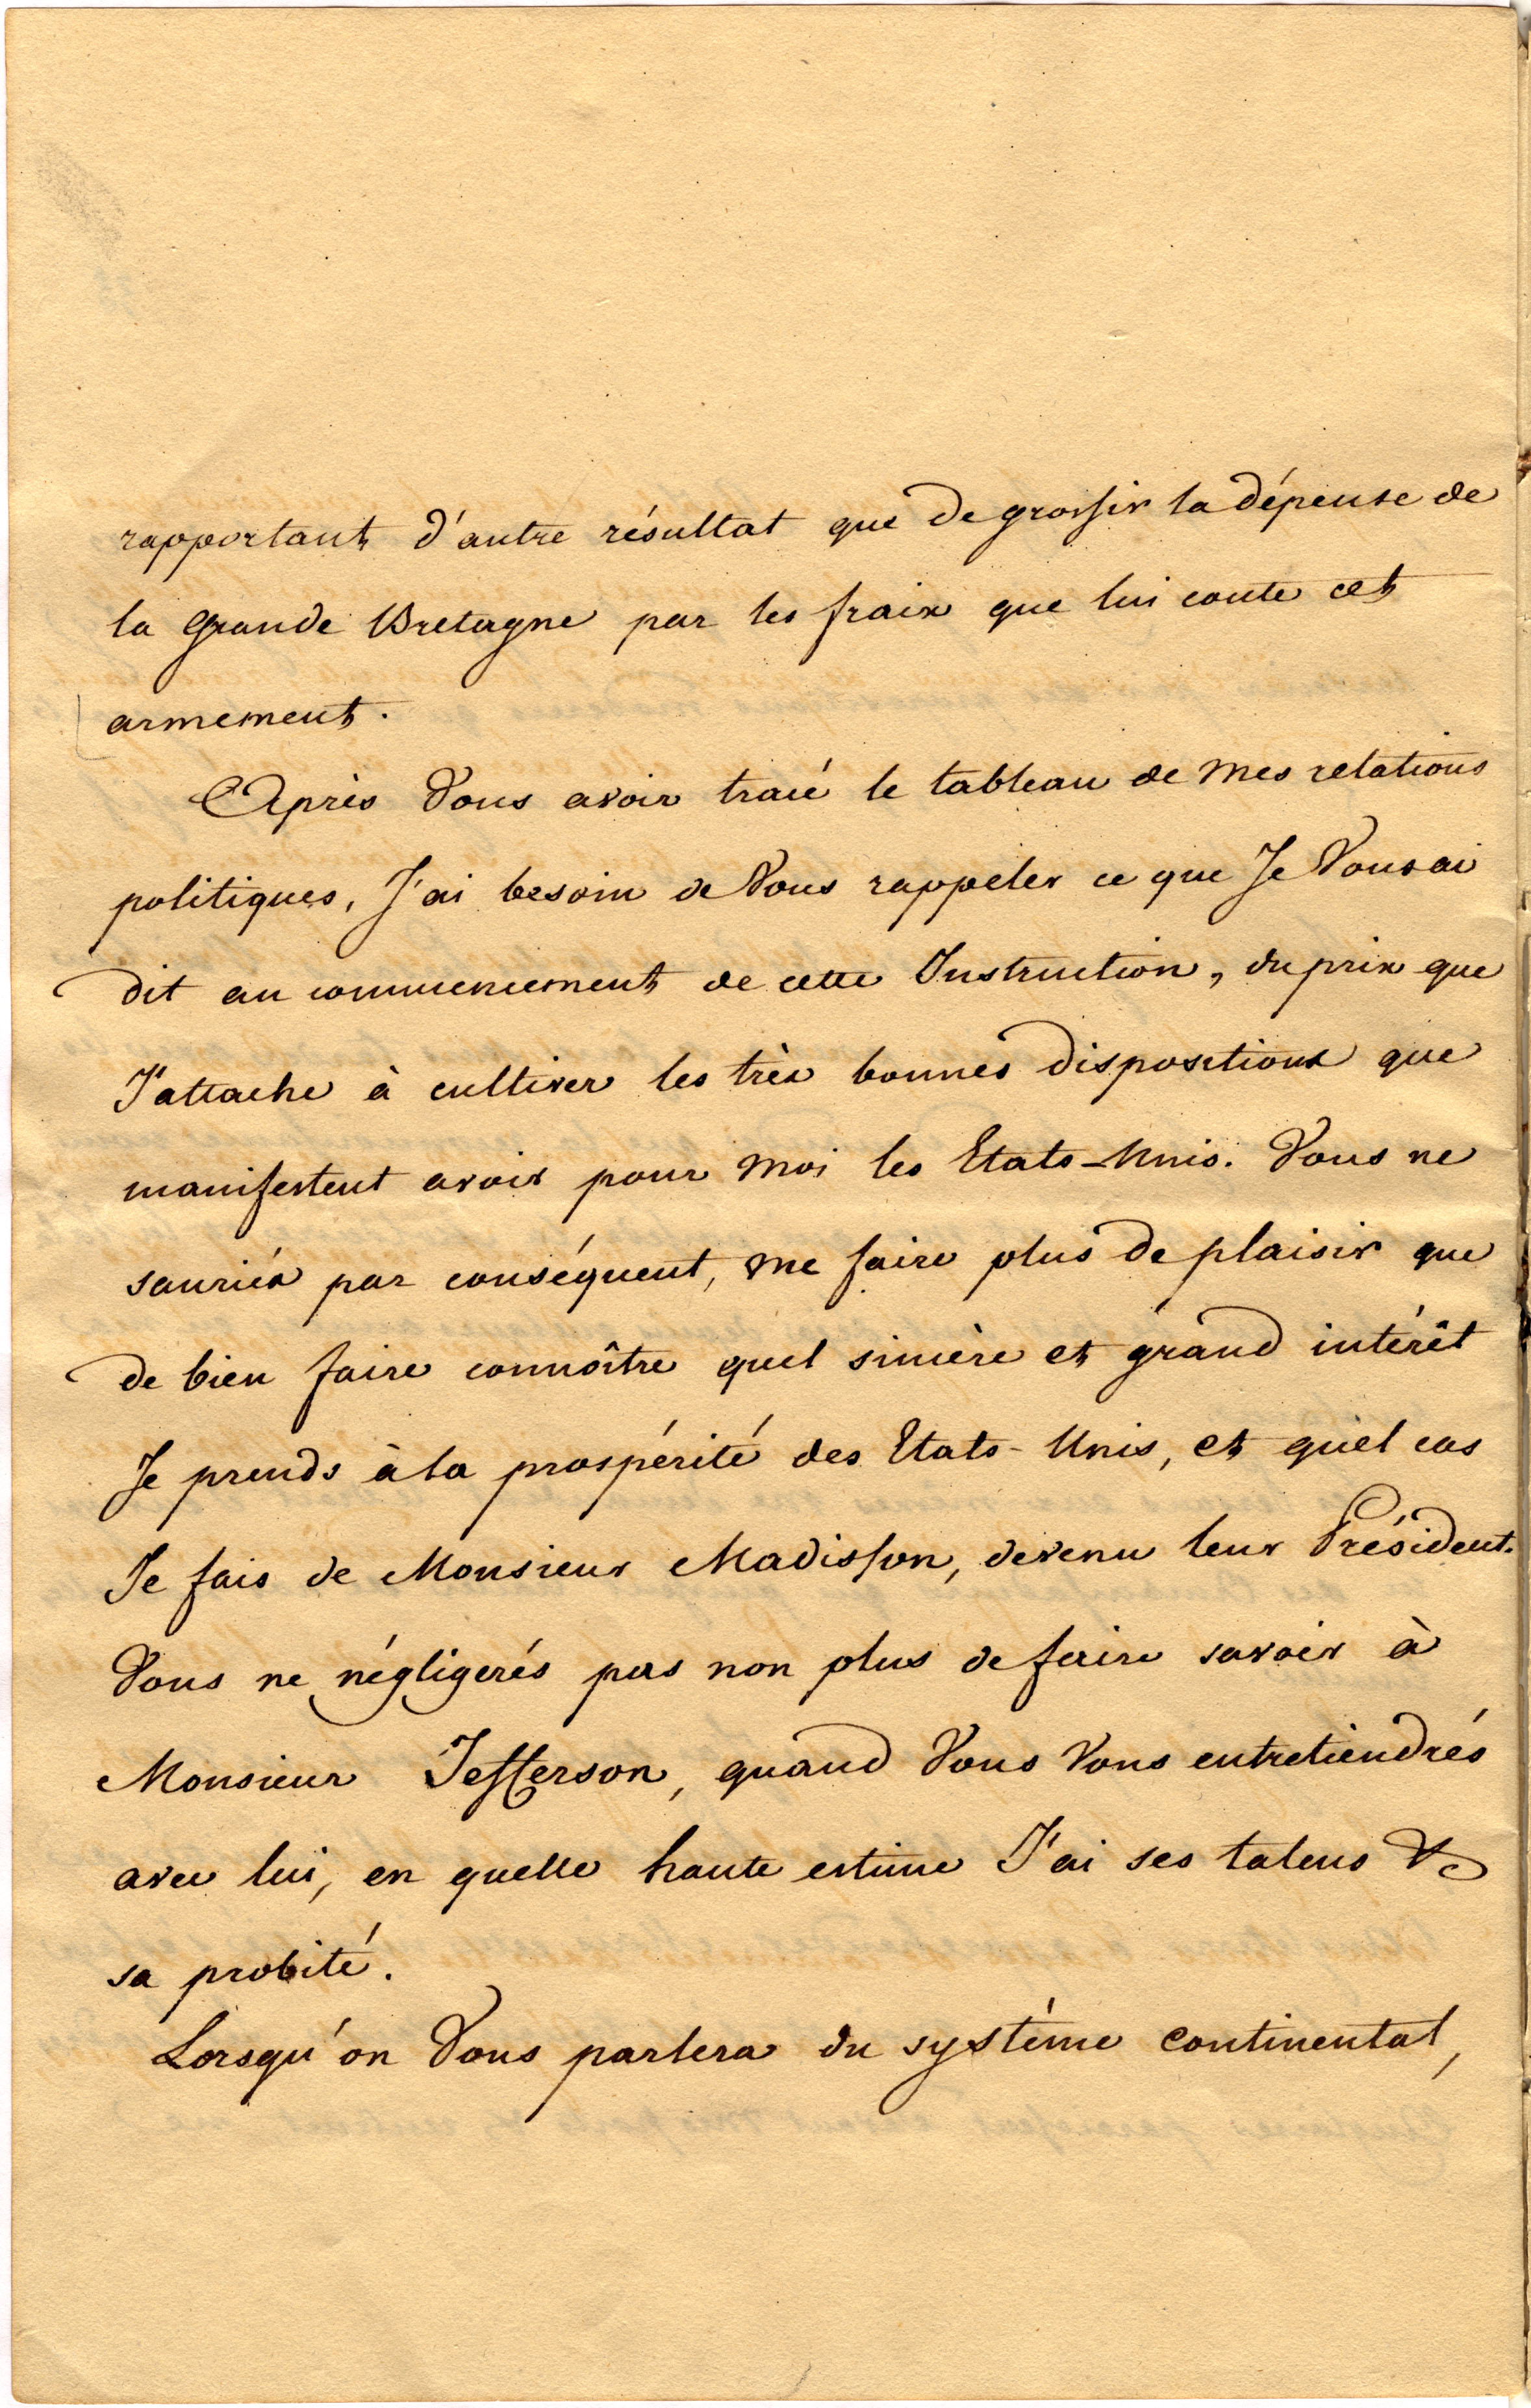 rapportant d'autre résultat que de grossir la dépense de
la Grande Bretagne par les fraix que lui coute cet
armement.
Après Vous avoir tracé le tableau de Mes relations
politiques, J'ai besoin de Vous rappeler ce que Je Vous ai
dit au commencement de cette Instruction, du prix que
J'attache à cultiver les très bonnes dispositions que
manifestent avoir pour Moi les Etats-Unis. Vous ne
sauriés par conséquent, Me faire plus de plaisir que
de bien faire connoître quel sincère et grand intérêt
Je prends à la prospérité des Etats-Unis, et quel cas
Je fais de Monsieur Madisson, devenu leur Président.
Vous ne négligerés pas non plus de faire savoir à
Monsieur Jefferson, quand Vous Vous entretiendrés
avec lui, en quelle haute estime J'ai ses talens &
sa probité.
Lorsqu'on Vous parlera du système continental,